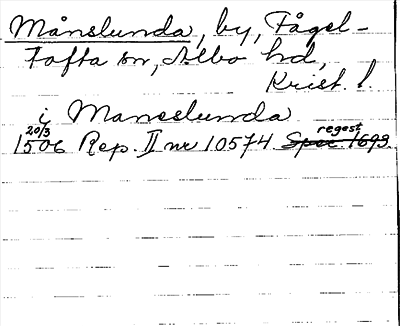 Månslunda, by, Fågel-
tofta sn, Albo hd,
Krist. l.
i Manselunda
20/3 regest
1506 Rep. II nr 10574 Spec 1693